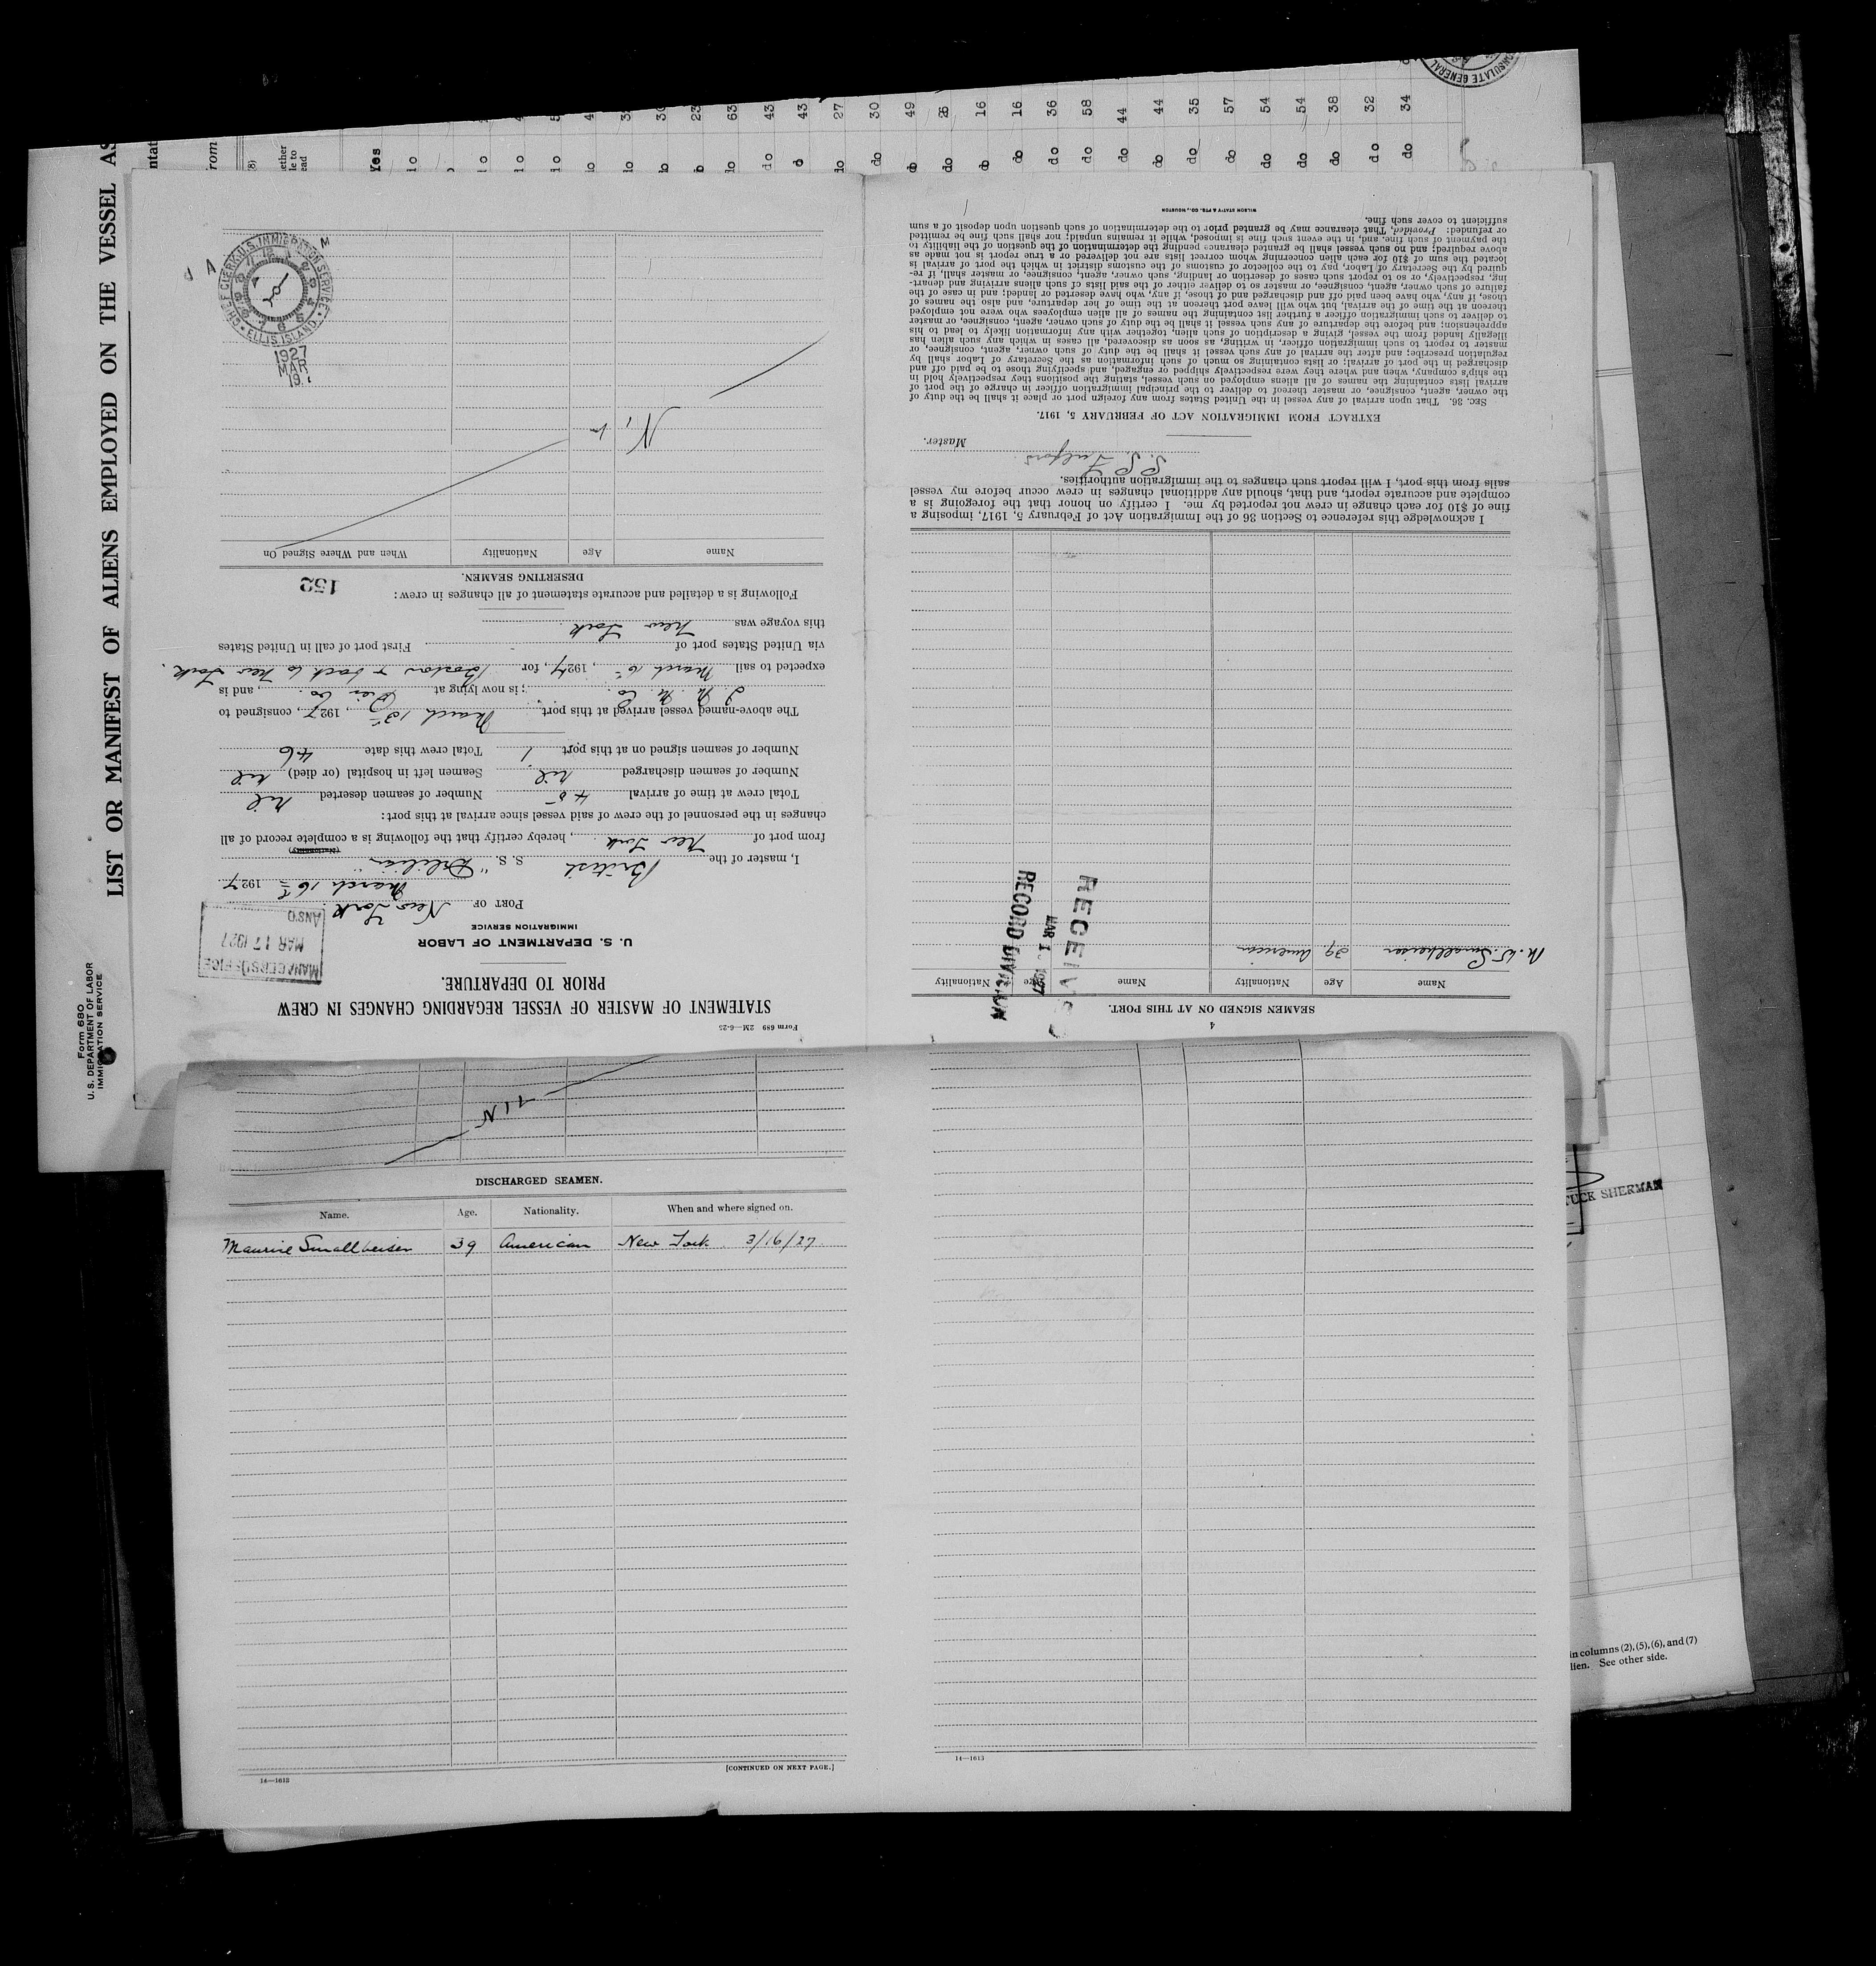 LIST OR MANIFEST OF ALIENS EMPLOYED ON THE VESSEL AS
Form 680
U. S. DEPARTMENT OF LABOR
IMMIGRATION SERVICE
Yes
23 63 43 43 27 30 49 26 16 16 36 58 44 44 35 57 54 54 38 32 34
do do do do do do do do do do do do do do do do do
CONSULATE GENERAL
Form 689 2M—6-25
STATEMENT OF MASTER OF VESSEL REGARDING CHANGES IN CREW
PRIOR TO DEPARTURE.
U. S. DEPARTMENT OF LABOR
IMMIGRATION SERVICE
MANAGERS OFFICE
MAR 17 1927
ANS'D
PORT OF New York
March 16th 1927
I, master of the British S. S. "
(Nationality)
from port of New York, hereby certify that the following is a complete record of all
changes in the personnel of the crew of said vessel since arrival at this port:
Total crew at time of arrival 45 Number of seamen deserted nil
Number of seamen discharged nil Seamen left in hospital (or died) nil
Number of seamen signed on at this port 1 Total crew this date 46
The above-named vessel arrived at this port March 13th, 1927, consigned to
I. M. M. Co.; is now lying at Pier 60, and is
expected to sail March 16th, 1927, for Boston & back to New York.
via United States port of - First port of call in United States
this voyage was New York
Following is a detailed and accurate statement of all changes in crew:
152
DESERTING SEAMEN.
Name Age Nationality When and Where Signed On
Nil
CHIEF CLERK U.S. IMMIGRATION SERVICE
ELLIS ISLAND
1927
MAR
4
SEAMEN SIGNED ON AT THIS PORT.
Name Age Nationality Name Age Nationality
M. W. Smallheiser 39 American
RECEIVED
MAR 1 1927
RECORD DIVISION
I acknowledge this reference to Section 36 of the Immigration Act of February 5, 1917, imposing a
fine of $10 for each change in crew not reported by me. I certify on honor that the foregoing is a
complete and accurate report, and that, should any additional changes in crew occur before my vessel
sails from this port, I will report such changes to the immigration authorities.
Master.
EXTRACT FROM IMMIGRATION ACT OF FEBRUARY 5, 1917.
SEC. 36. That upon arrival of any vessel in the United States from any foreign port or place it shall be the duty of
the owner, agent, consignee, or master thereof to deliver to the principal immigration officer in charge of the port of
arrival lists containing the names of all aliens employed on such vessel, stating the positions they respectively hold in
the ship's company, when and where they were respectively shipped or engaged, and specifying those to be paid off and
discharged in the port of arrival; or lists containing so much of such information as the Secretary of Labor shall by
regulation prescribe; and after the arrival of any such vessel it shall be the duty of such owner, agent, consignee, or
master to report to such immigration officer, in writing, as soon as discovered, all cases in which any such alien has
illegally landed from the vessel, giving a description of such alien, together with any information likely to lead to his
apprehension; and before the departure of any such vessel it shall be the duty of such owner, agent, consignee, or master
to deliver to such immigration officer a further list containing the names of all alien employees who were not employed
thereon at the time of the arrival, but who will leave port thereon at the time of her departure, and also the names of
those, if any, who have been paid off and discharged and of those, if any, who have deserted or landed; and in case of the
failure of such owner, agent, consignee, or master so to deliver either of the said lists of such aliens arriving and depart-
ing, respectively, or so to report such cases of desertion or landing, such owner, agent, consignee, or master shall, if re-
quired by the Secretary of Labor, pay to the collector of customs of the customs district in which the port of arrival is
located the sum of $10 for each alien concerning whom correct lists are not delivered or a true report is not made as
above required; and no such vessel shall be granted clearance pending the determination of the question of the liability to
the payment of such fine, and, in the event such fine is imposed, while it remains unpaid; nor shall such fine be remitted
or refunded: Provided, That clearance may be granted prior to the determination of such question upon deposit of a sum
sufficient to cover such fine.
WILSON STAT'Y & PTG. CO., HOUSTON
Nil
DISCHARGED SEAMEN.
Name. Age. Nationality. When and where signed on.
Maurice Smallheiser 39 American New York 3/16/27
[CONTINUED ON NEXT PAGE.]
14—1613
14—1613
TUCK SHERMAN
in columns (2), (5), (6), and (7)
lien. See other side.